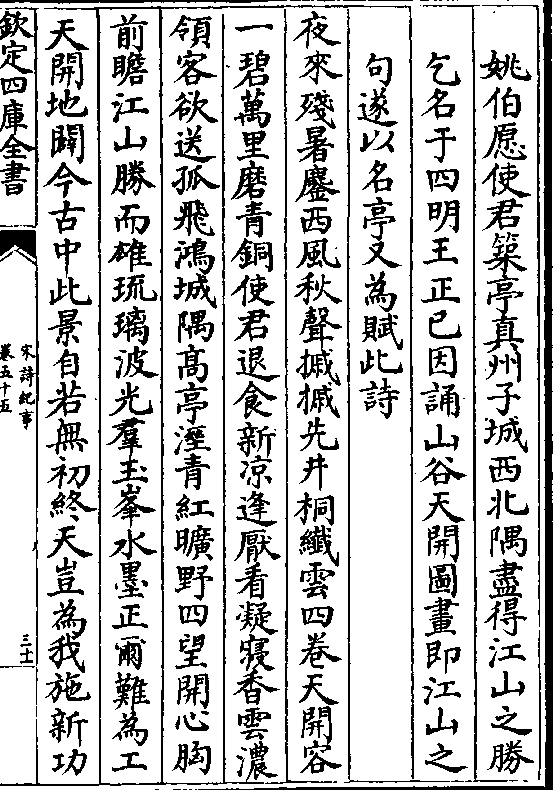 姚伯愿使君築亭真州子城西北隅盡得江山之勝
乞名于四明王正己因誦山谷天開圖畫即江山之
句遂以名亭又為賦此詩
夜來殘暑鏖西風秋聲摵摵先井桐纎雲四卷天開容
一碧萬里磨青銅使君退食新凉逢厭看凝寢香雲濃
領客欲送孤飛鴻城隅髙亭溼青紅曠野四望開心胸
前瞻江山勝而雄琉璃波光羣玉峯水墨正爾難為工
天開地闢今古中此景自若無初終天豈為我施新功
欽定四庫全書
宋詩紀事
卷五十五